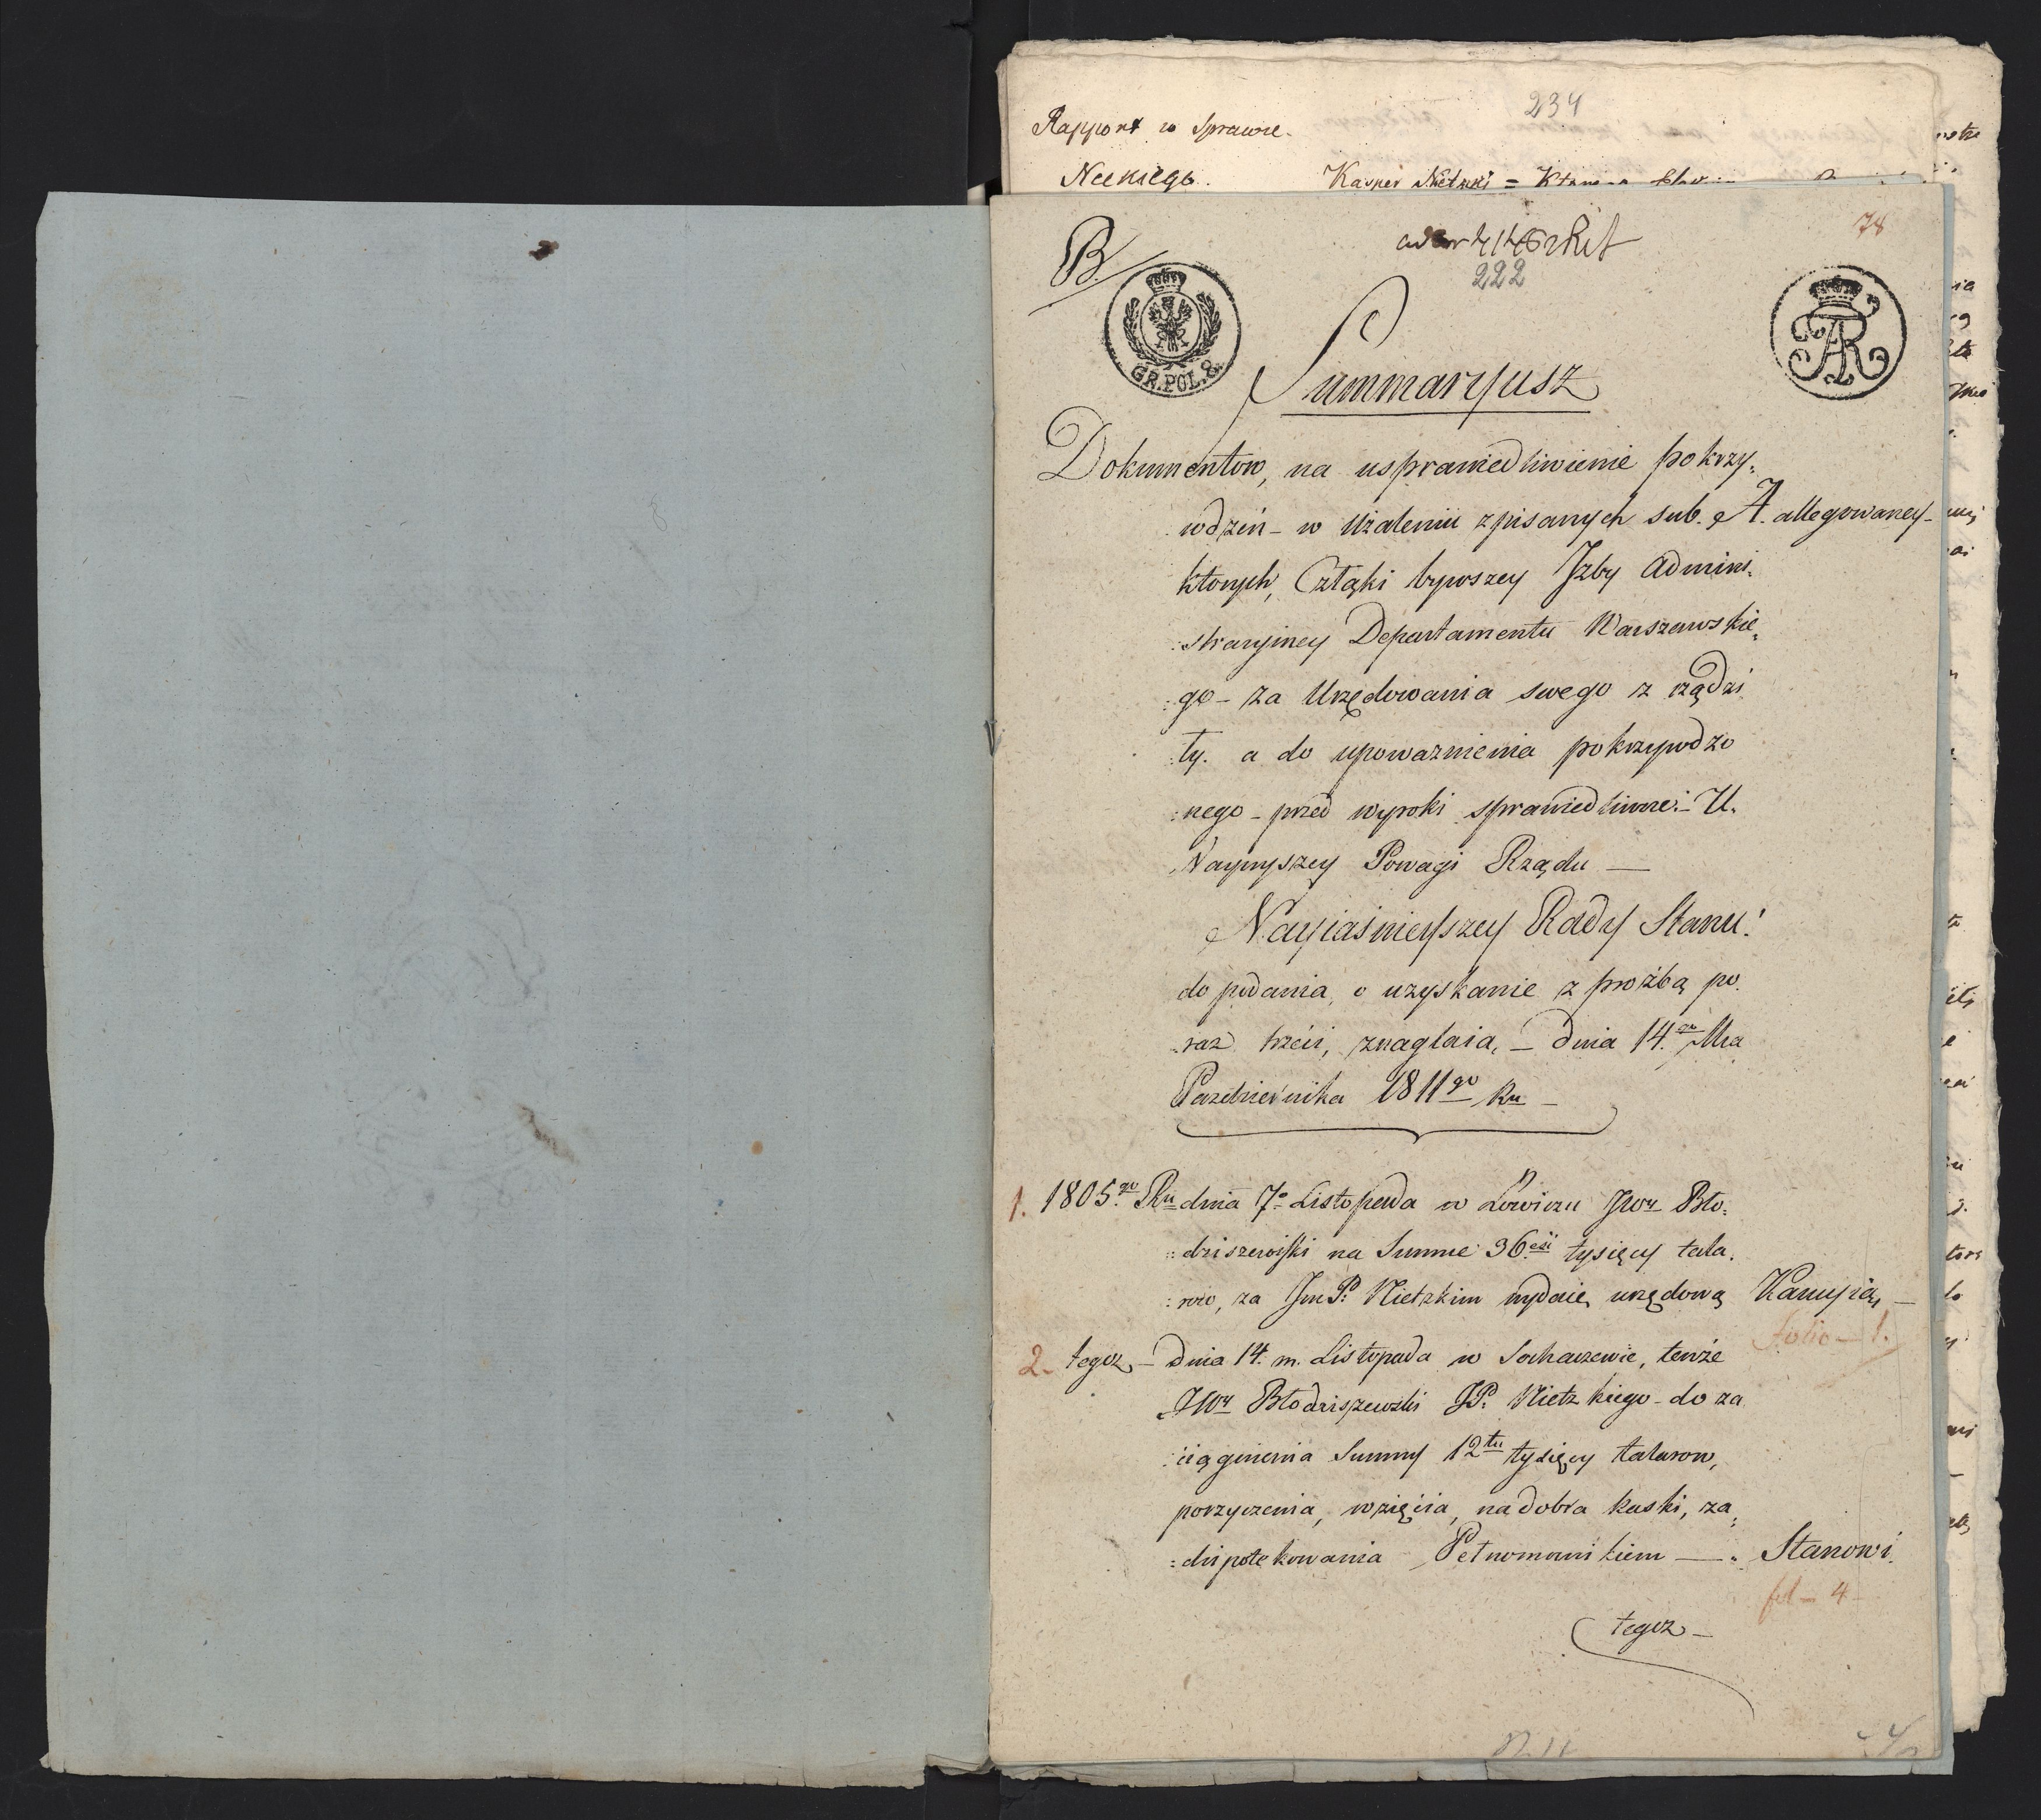 234
Rapport w Sprawie
Kasper Nietzki =
B.
222
78
GR. POL. 8.
FAR
Summaryusz
Dokumentow, na usprawiedliwienie pokrzy-
wdzeń – w Użaleniu zpisanych sub. A. allegowaney –
ktorych, Cztąki bywszey Jzby Admini-
:straryiney Departamentu Warszawskie-
:go – za Urzędowania swego z rządzi
:ły. a do upowaznienia pokrzywdzo
:nego – przed wyroki sprawiedliwne: U.
Naywyszey Powagi Rządu —
Nayiaśnieyszey Rady Stanu!
do podania, o uzyskanie z prożbą po.
raz trzeci, znaglaia, – Dnia 14.go Mca
Pazdziernika 1811go Ru –
1. 1805.go Ru dnia 7o Listopada w Łowiczu JWny Bło-
:dziszewski na Summe 36.eści tysięcy tala.
:row, za Jm P: Nietzkim wydaie, urzędową Kaucyią, –
Folio – 1.
2. tegoz, – Dnia 14. m. Listopada w Sochaczewie, tenże
JWny Błodziszewski JP: Nietzkiego – do za
:ciągnienia Summy 12tu tysięcy talarow,
porzyczenia, wzięcia, na dobra Kaski, za,
:chipotekowania Pełnomocnikiem —. Stanowi.
fol – 4 –
tegoz –